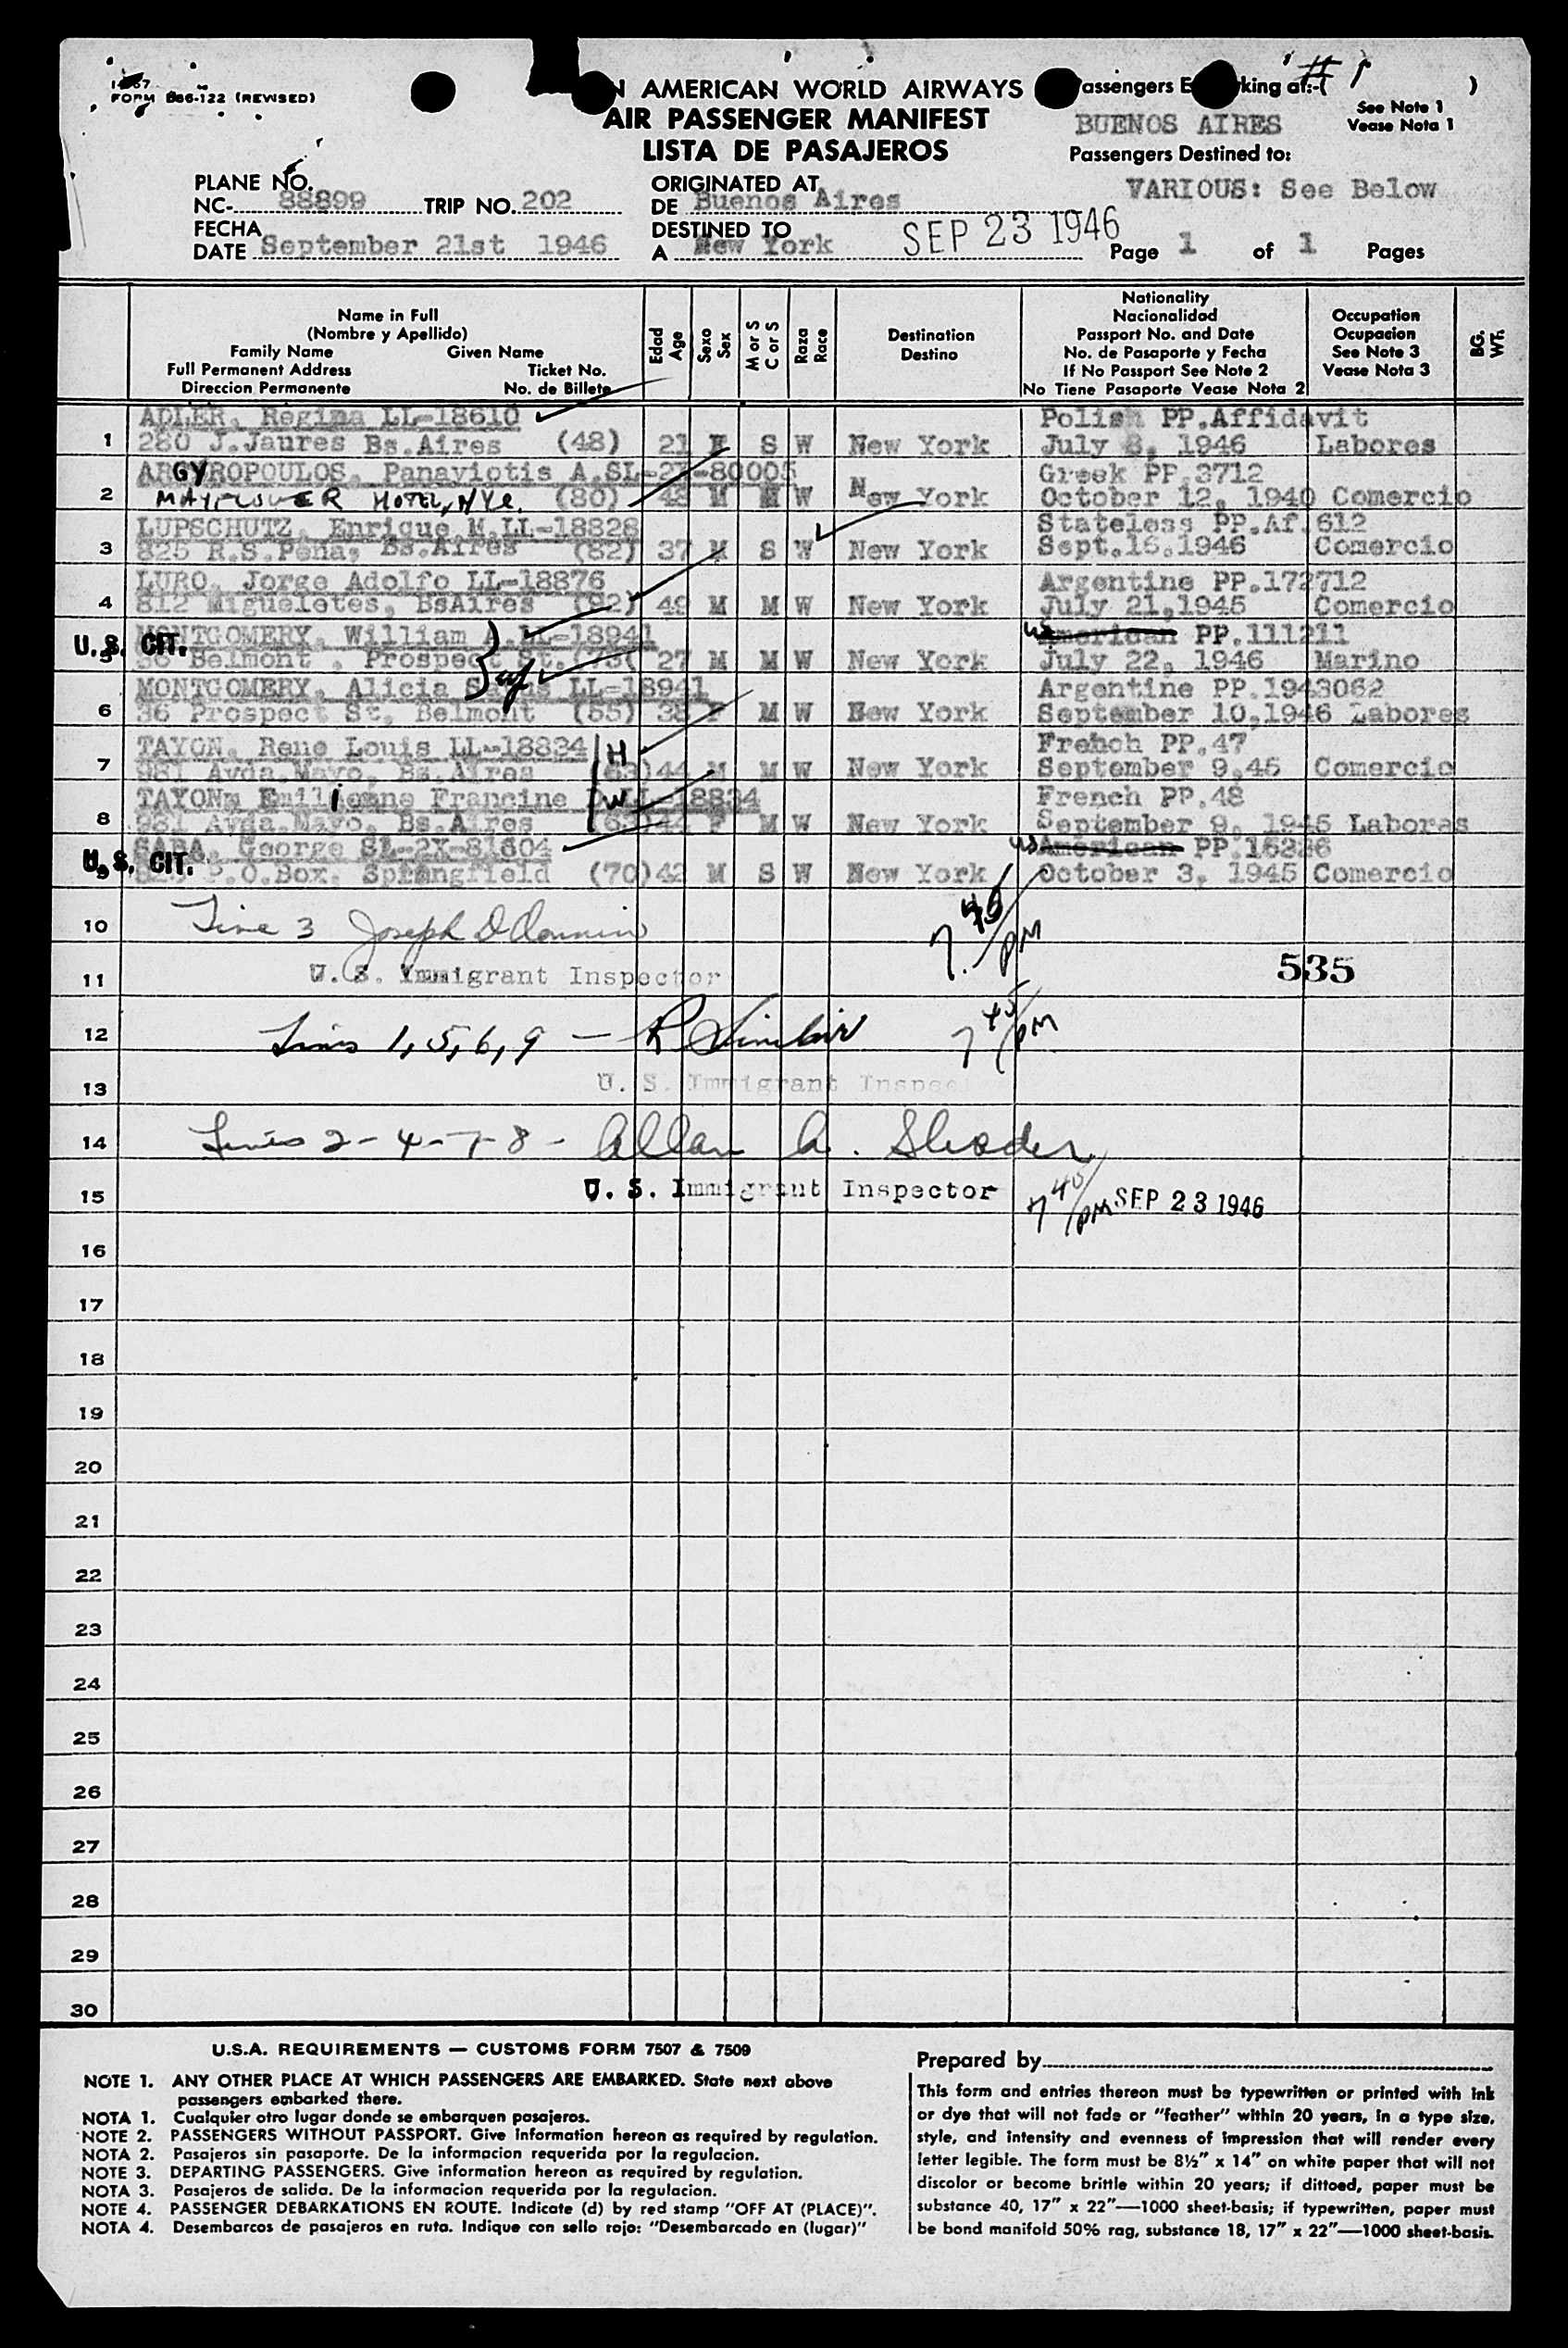 FORM 686-122 (REVISED)
N AMERICAN WORLD AIRWAYS
AIR PASSENGER MANIFEST
LISTA DE PASAJEROS
assengers E king at:-( # 1 )
See Note 1
Vease Nota 1
BUENOS AIRES
Passengers Destined to:
VARIOUS: See Below
PLANE NO.
NC- 88899 TRIP NO. 202
FECHA
DATE September 21st 1946
ORIGINATED AT
DE Buenos Aires
DESTINED TO
A New York
SEP 23 1946
Page 1 of 1 Pages
Name in Full
(Nombre y Apellido)
Family Name Given Name
Full Permanent Address Ticket No.
Direccion Permanente No. de Billete
Edad
Age
Sexo
Sex
M or S
C or S
Raza
Race
Destination
Destino
Nationality
Nacionalidad
Passport No. and Date
No. de Pasaporte y Fecha
If No Passport See Note 2
No Tiene Pasaporte Vease Nota 2
Occupation
Ocupacion
See Note 3
Vease Nota 3
BG.
WT.
ADLER, Regina LL-18610 Polish PP.Affidavit
1 280 J.Jaures Bs.Aires (48) 21 F S W New York July 8, 1946 Labores
ARGYROPOULOS, Panayiotis A.SL-2X-80005 Greek PP.3712
2 MAYFLOWER HOTEL, NYC. (80) 48 M M W New York October 12, 1940 Comercio
LUPSCHUTZ, Enrique M.LL-18828 Stateless PP.Af.612
3 825 R.S.Pena, Bs.Aires (82) 37 M S W New York Sept.16.1946 Comercio
LURO, Jorge Adolfo LL-18876 Argentine PP.172712
4 812 Migueletes, BsAires (92) 49 M M W New York July 21,1945 Comercio
U.S. CIT. MONTGOMERY, William A.LL-18941 US American PP.111211
5 36 Belmont , Prospect St. (75( 27 M M W New York July 22, 1946 Marino
MONTGOMERY, Alicia LL-18941 Argentine PP.1943062
6 36 Prospect St, Belmont (55) 38 F M W New York September 10,1946 Labores
TAYON, Rene Louis LL-18834 H French PP.47
7 981 Avda.Mayo, Bs.Aires (63)44 M M W New York September 9,45 Comercio
TAYON, Emilienne Francine LL-18834 W French PP.48
8 981 Avda.Mayo, Bs.Aires (63)44 F M W New York September 9, 1945 Labores
U.S. CIT. SABA, George SL-2X-81604 US American PP.16236
9 P.O.Box. Springfield (70)42 M S W New York October 3, 1945 Comercio
10 Line 3 Joseph D 7.45 PM
11 U. S. Immigrant Inspector 535
12 Lines 1, 5, 6, 9 — R Sinclair 7 45 PM
13 U. S. Immigrant Inspec
14 Lines 2-4-7-8 - Allan A. Shader
15 U. S. Immigrant Inspector 7 45 PM SEP 23 1946
16
17
18
19
20
21
22
23
24
25
26
27
28
29
30
U.S.A. REQUIREMENTS — CUSTOMS FORM 7507 & 7509
NOTE 1. ANY OTHER PLACE AT WHICH PASSENGERS ARE EMBARKED. State next above
passengers embarked there.
NOTA 1. Cualquier otro lugar donde se embarquen pasajeros.
NOTE 2. PASSENGERS WITHOUT PASSPORT. Give information hereon as required by regulation.
NOTA 2. Pasajeros sin pasaporte. De la informacion requerida por la regulacion.
NOTE 3. DEPARTING PASSENGERS. Give information hereon as required by regulation.
NOTA 3. Pasajeros de salida. De la informacion requerida por la regulacion.
NOTE 4. PASSENGER DEBARKATIONS EN ROUTE. Indicate (d) by red stamp "OFF AT (PLACE)".
NOTA 4. Desembarcos de pasajeros en ruta. Indique con sello rojo: "Desembarcado en (lugar)"
Prepared by
This form and entries thereon must be typewritten or printed with ink
or dye that will not fade or "feather" within 20 years, in a type size,
style, and intensity and evenness of impression that will render every
letter legible. The form must be 8½" x 14" on white paper that will not
discolor or become brittle within 20 years; if dittoed, paper must be
substance 40, 17" x 22"—1000 sheet-basis; if typewritten, paper must
be bond manifold 50% rag, substance 18, 17" x 22"—1000 sheet-basis.